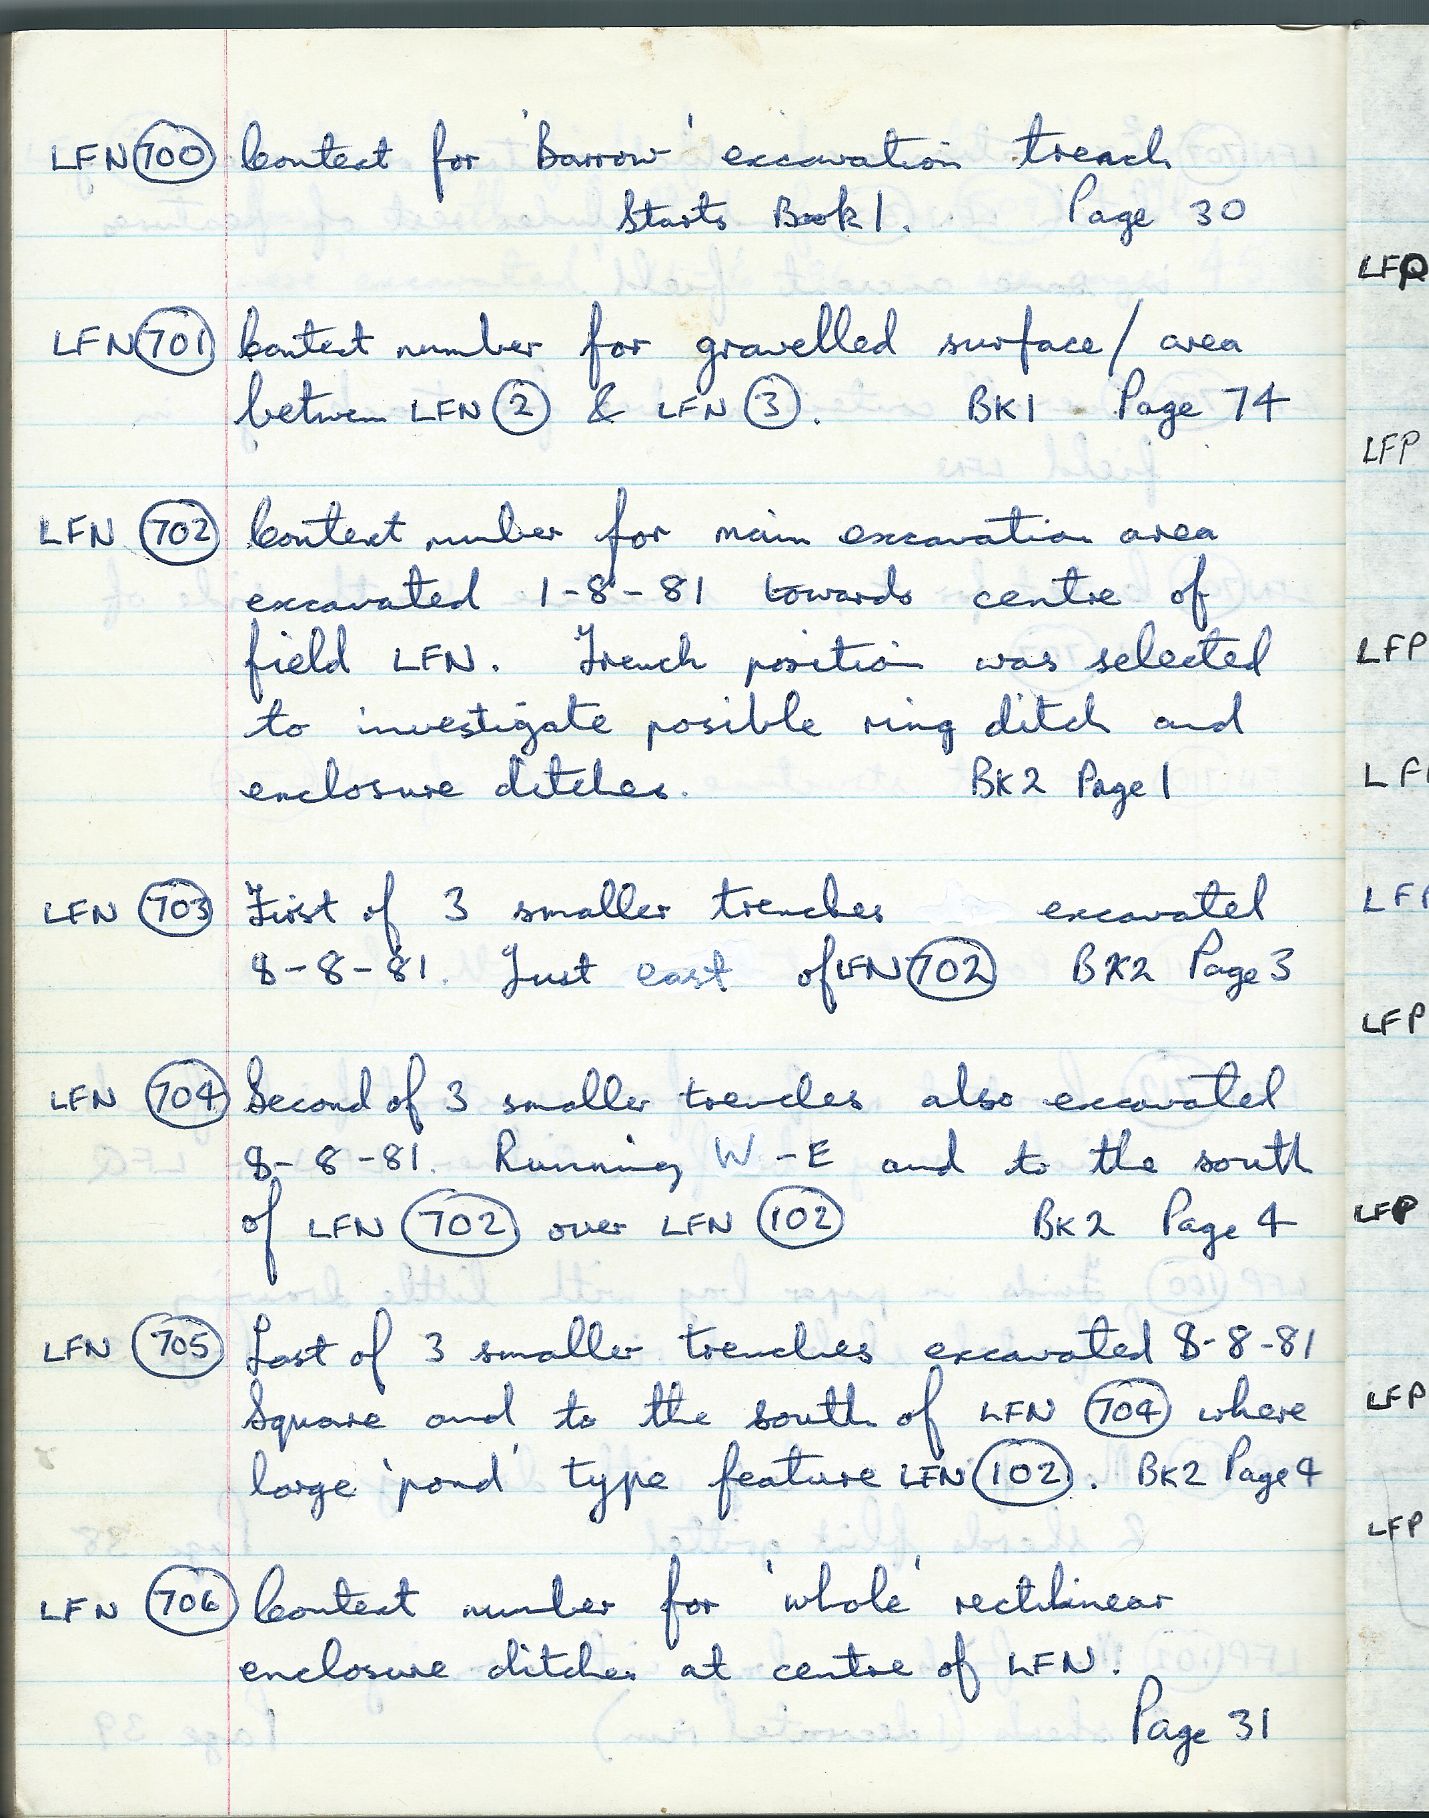 LFN 700 Context for 'Barrow' excavation trench
Starts Book 1. Page 30
LFN 701 Context number for gravelled surface/area
between LFN 2 & LFN 3. BK1 Page 74
LFN 702 Context number for main excavation area
excavated 1-8-81 towards centre of
field LFN. Trench position was selected
to investigate posible ring ditch and
enclosure ditches. BK2 Page 1
LFN 703 First of 3 smaller trenches excavated
8-8-81. Just east of LFN 702 BK2 Page 3
LFN 704 Second of 3 smaller trenches also excavated
8-8-81. Running W-E and to the south
of LFN 702 over LFN 102 BK2 Page 4
LFN 705 Last of 3 smaller trenches excavated 8-8-81
Square and to the south of LFN 704 where
large 'pond' type feature LFN 102. BK2 Page 4
LFN 706 Context number for 'whole' rectilinear
enclosure ditches at centre of LFN.
Page 31
LFQ
LFP
LFP
LFP
LFP
LFP
LFP
LFP